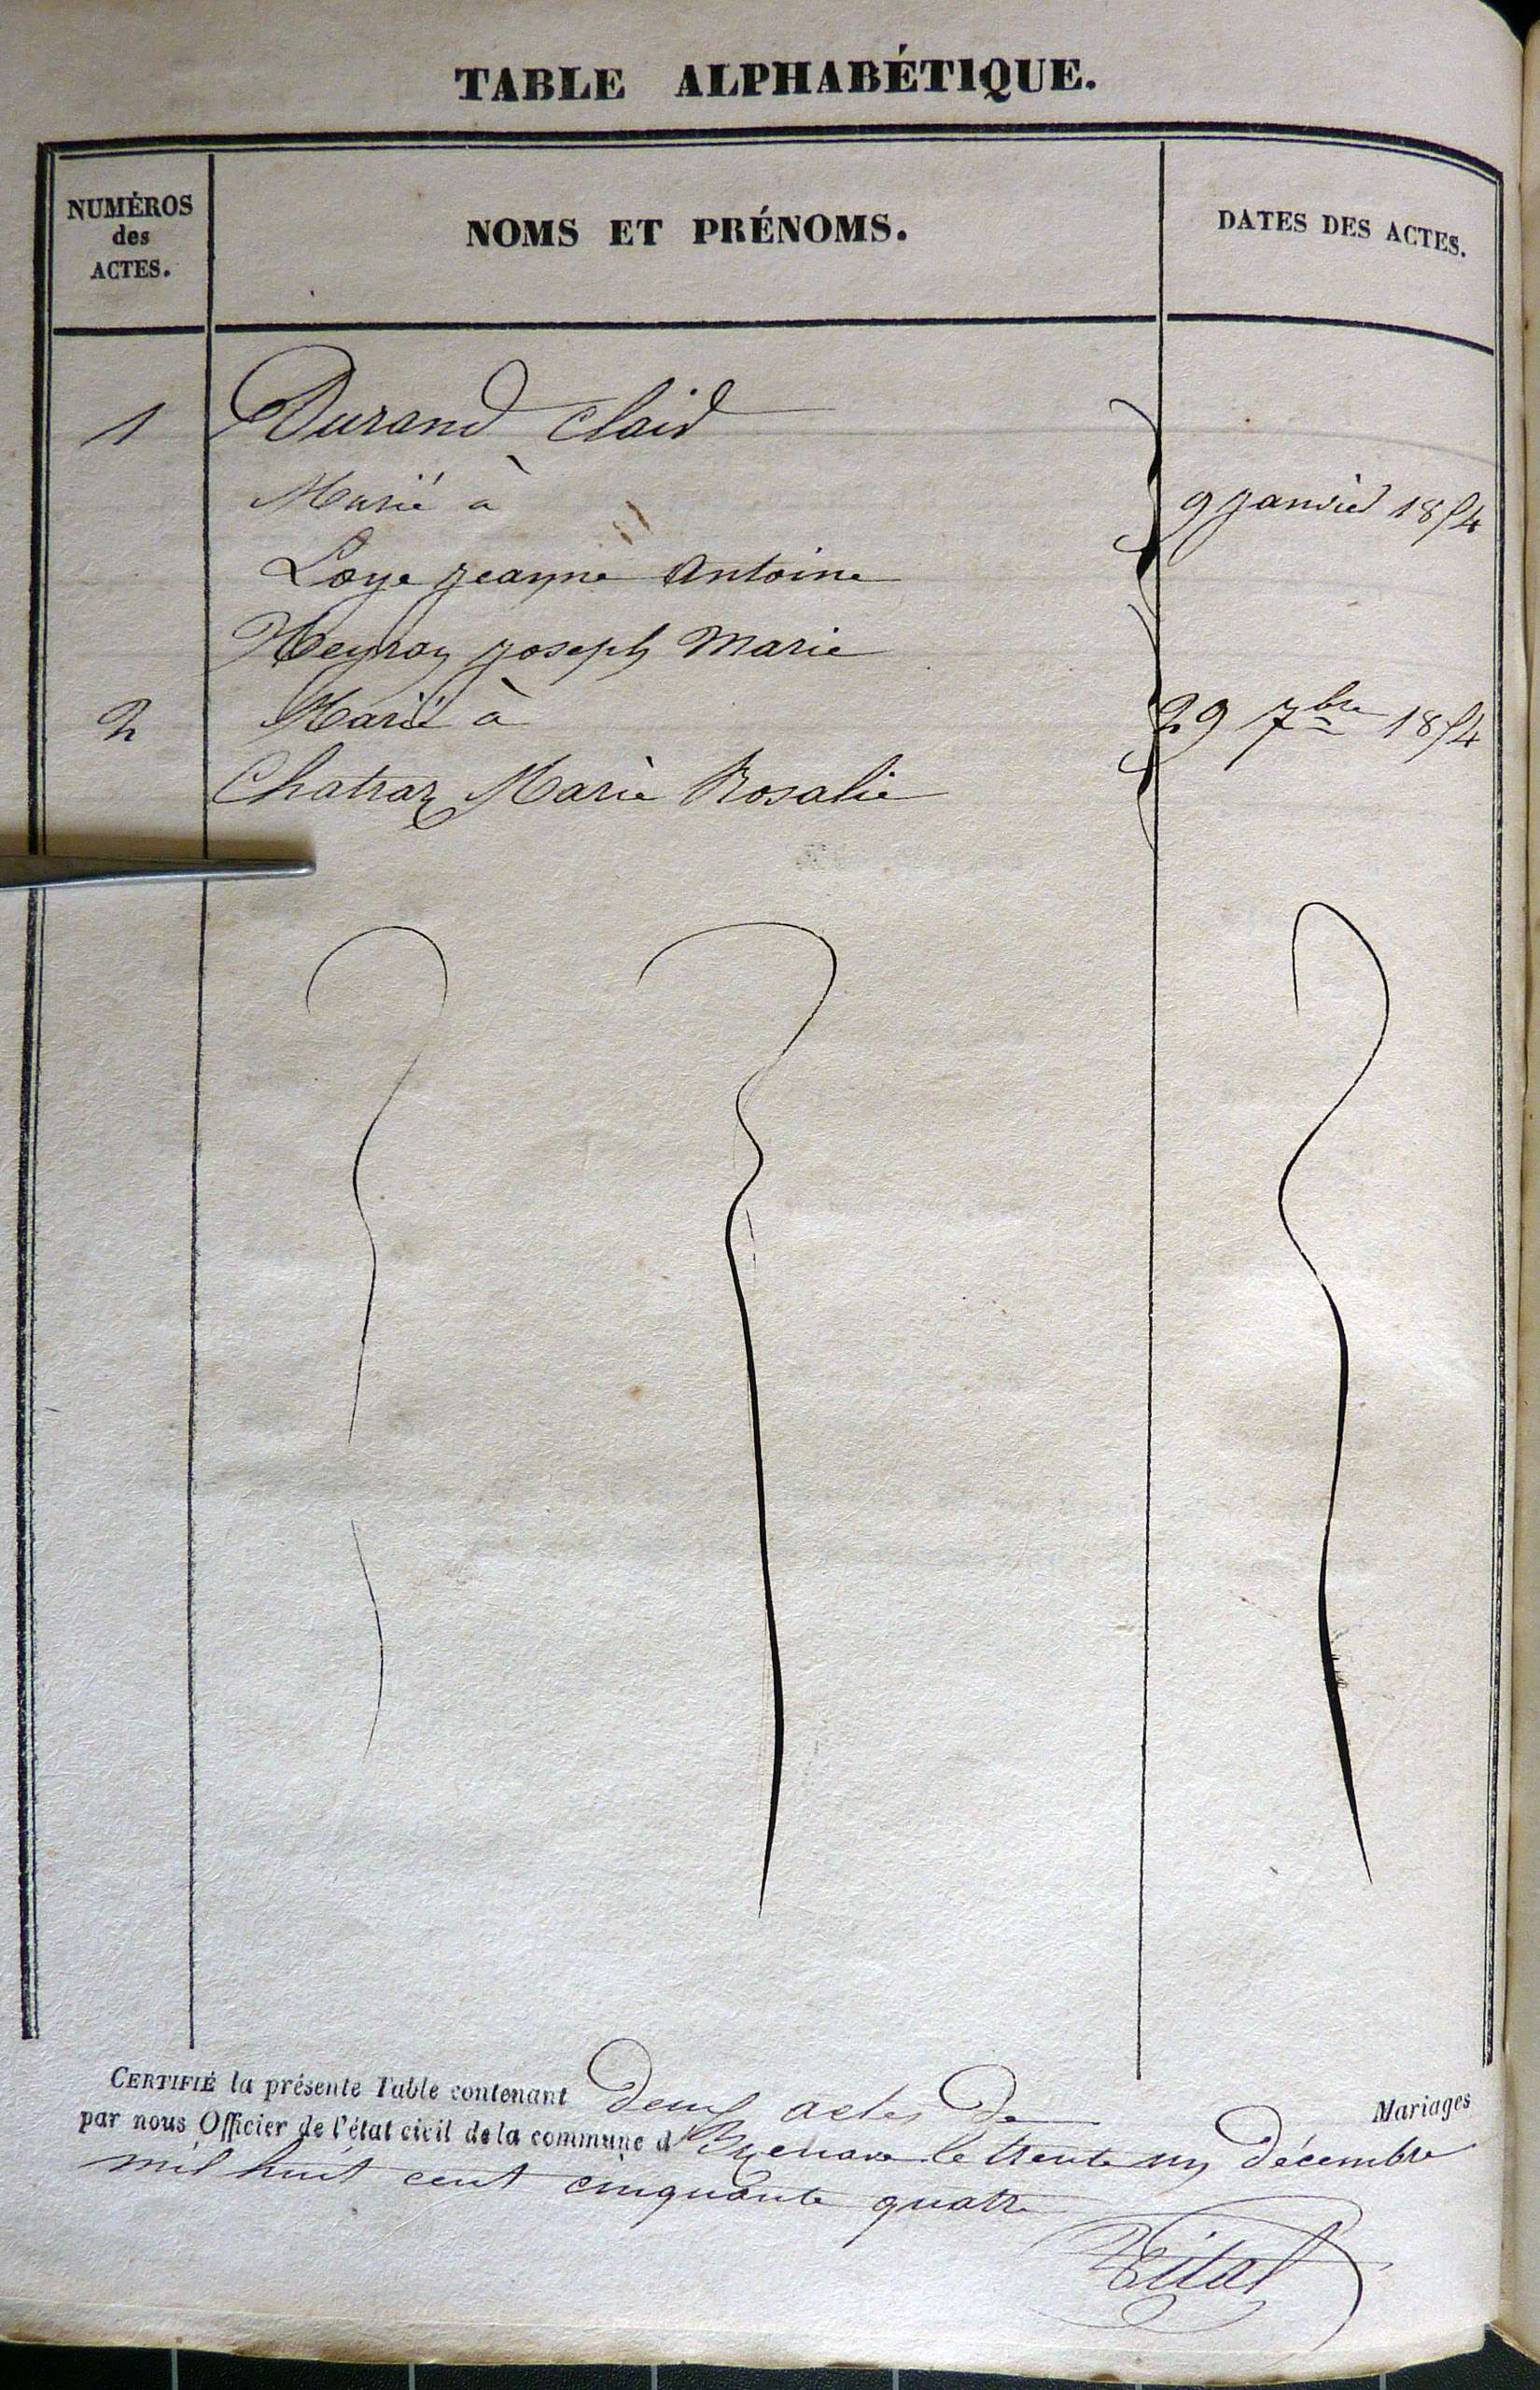 TABLE ALPHABÉTIQUE.
NUMÉROS des ACTES.
NOMS ET PRÉNOMS.
DATES DES ACTES.
1 Durand Clair
Marié à 9 janvier 1854
Loye jeanne Antoine
joseph Marie
2 Marié à 29 7bre 1854
Marie Rosalie
CERTIFIÉ la présente Table contenant deux actes de Mariages
par nous Officier de l'état civil de la commune d le trente un décembre
mil huit cent cinquante quatre
Vital